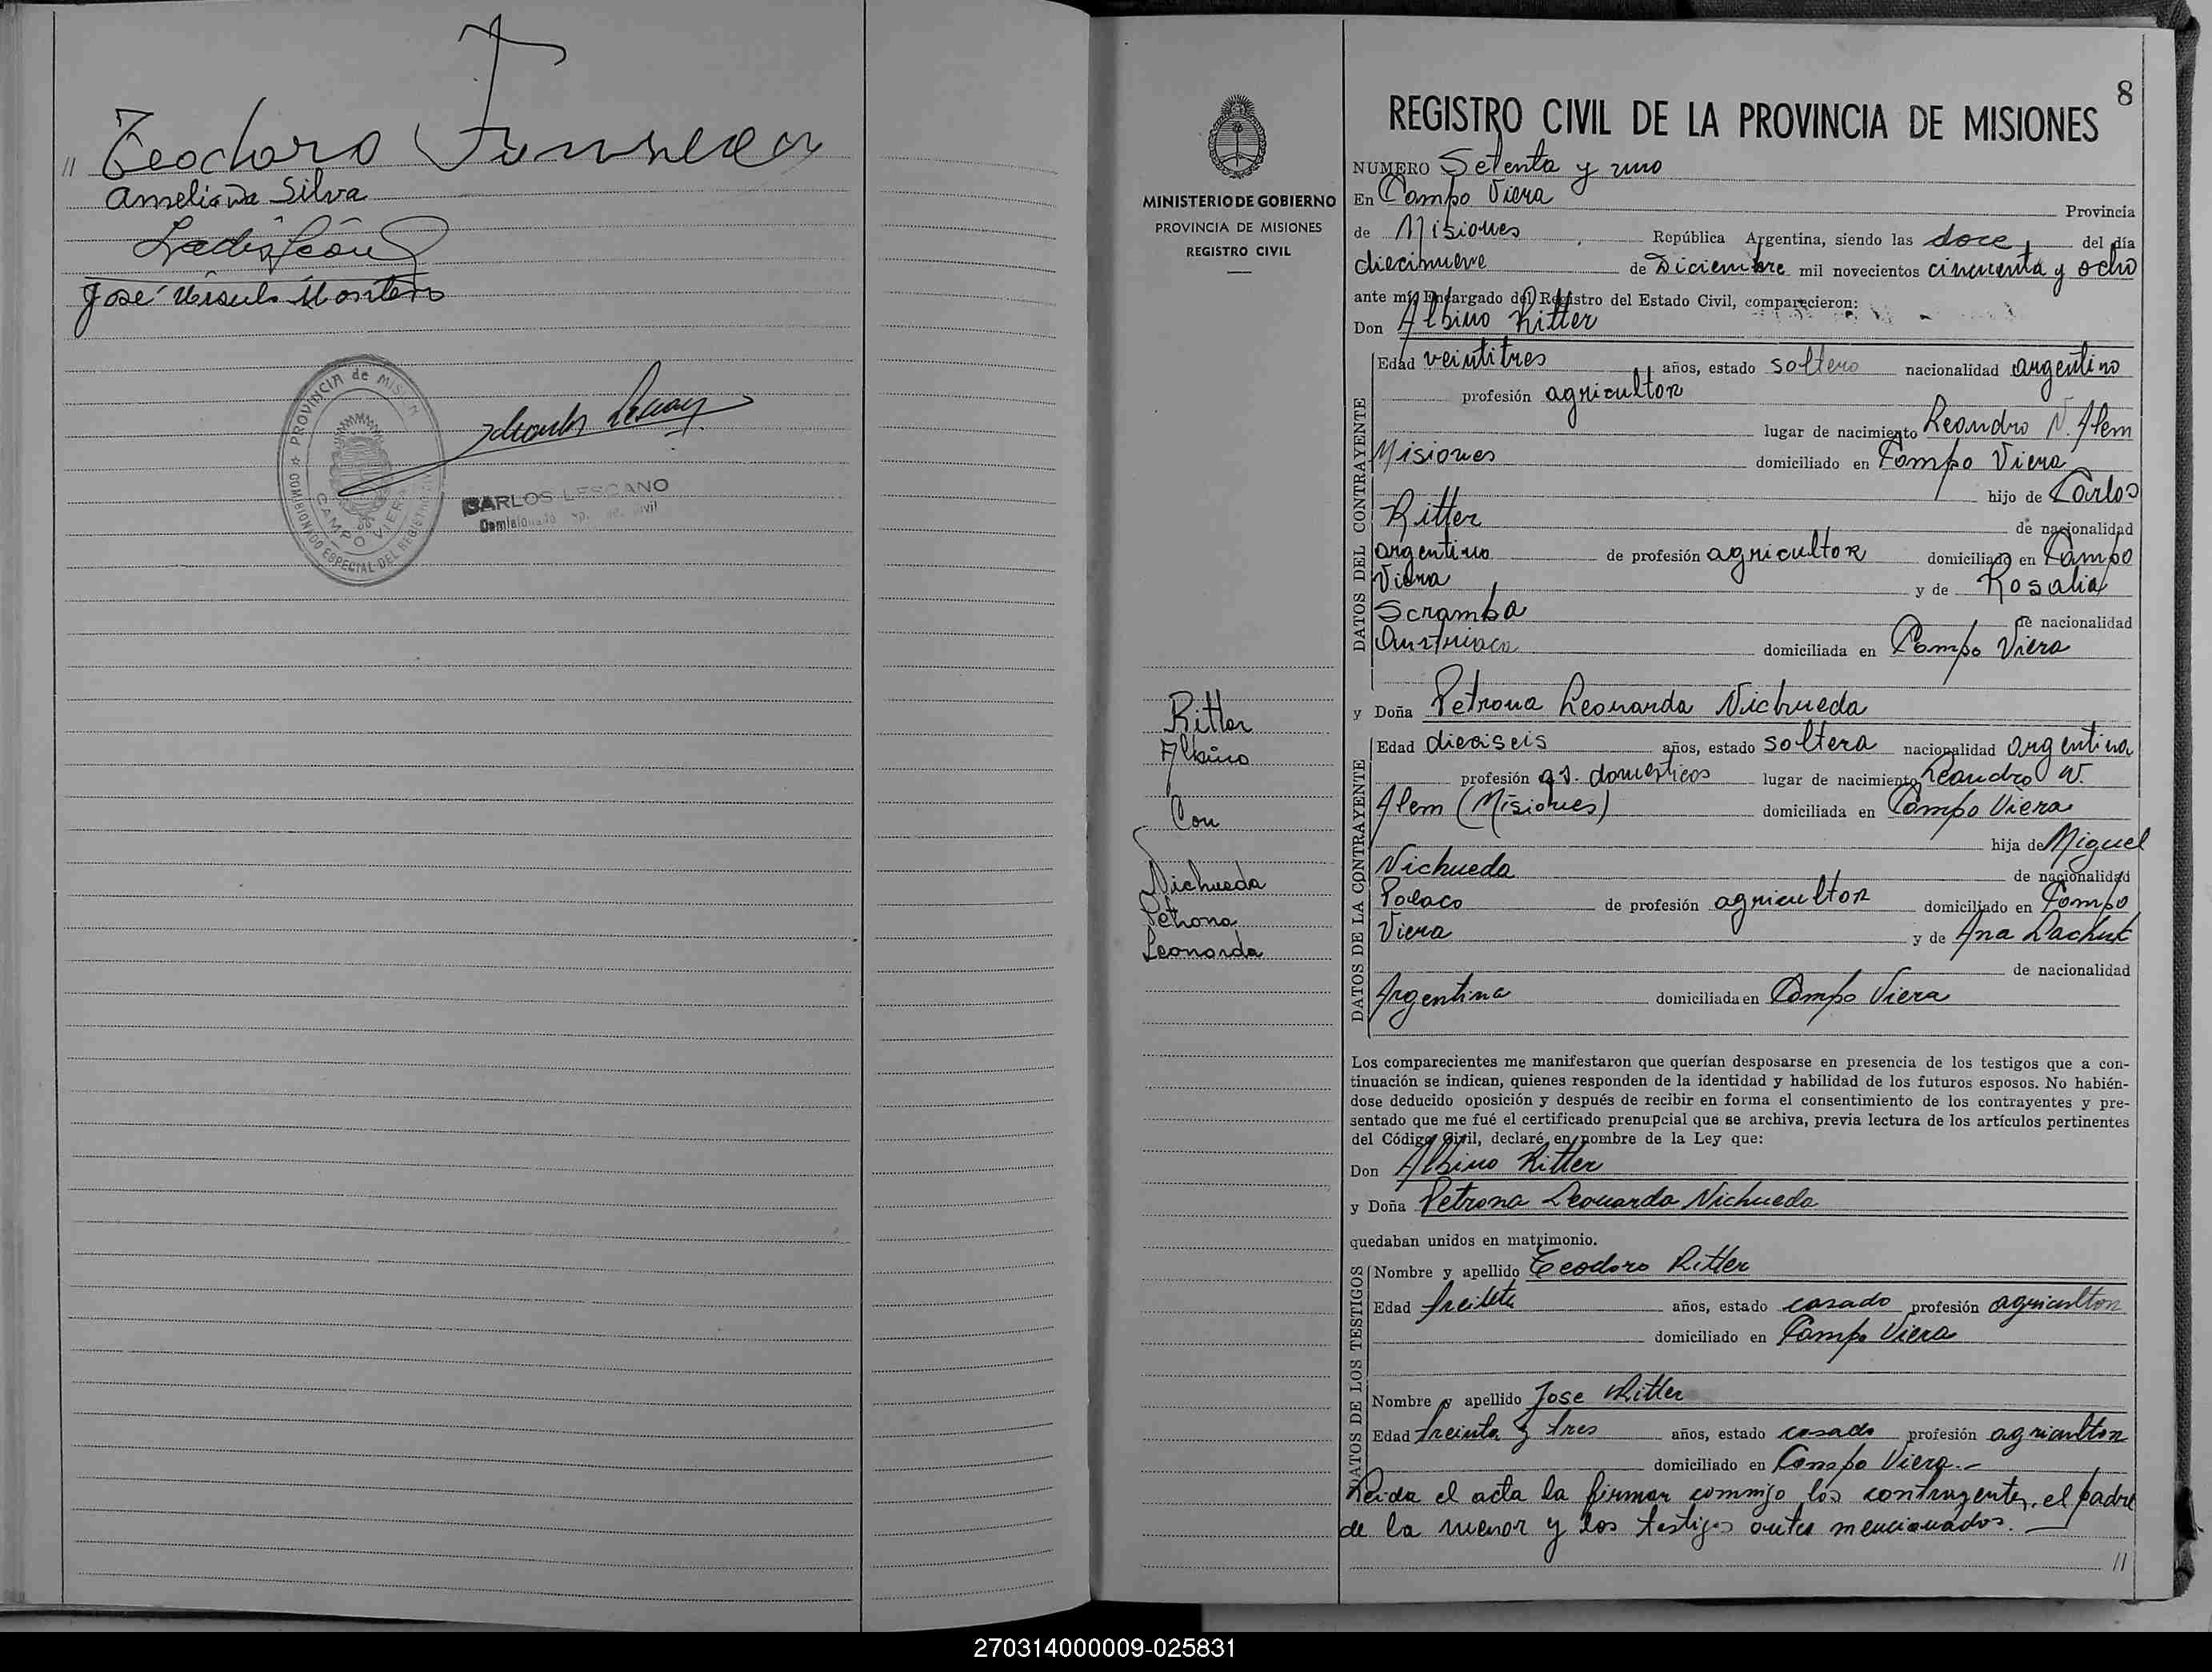 " Teodoro Fonseca
Ameliana Silva
José Ursulo Montero
PROVINCIA de MISIONES
COMISIONADO ESPECIAL DEL REGISTRO
CAMPO VIERA
CARLOS LESCANO
8
REGISTRO CIVIL DE LA PROVINCIA DE MISIONES
MINISTERIO DE GOBIERNO
PROVINCIA DE MISIONES
REGISTRO CIVIL
Ritter
Albino
Con
Nichueda
Petrona
Leonarda
NUMERO Setenta y uno
En Campo Viera Provincia
de Misiones República Argentina, siendo las doce del día
diecinueve de Diciembre mil novecientos cincuenta y ocho
ante mí, Encargado del Registro del Estado Civil, comparecieron:
Don Albino Ritter
DATOS DEL CONTRAYENTE
Edad veintitres años, estado soltero nacionalidad argentino
profesión agricultor
lugar de nacimiento Leandro N. Alem
Misiones domiciliado en Campo Viera
hijo de Carlos
Ritter de nacionalidad
argentino de profesión agricultor domiciliado en Campo
Viera y de Rosalia
Scramba de nacionalidad
Austriaca domiciliada en Campo Viera
y Doña Petrona Leonarda Nichueda
DATOS DE LA CONTRAYENTE
Edad dieciseis años, estado soltera nacionalidad argentina
profesión qs. domesticos lugar de nacimiento Leandro N.
Alem (Misiones) domiciliada en Campo Viera
hija de Miguel
Nichueda de nacionalidad
Polaco de profesión agricultor domiciliado en Campo
Viera y de Ana Dachuk
de nacionalidad
Argentina domiciliada en Campo Viera
Los comparecientes me manifestaron que querían desposarse en presencia de los testigos que a con-
tinuación se indican, quienes responden de la identidad y habilidad de los futuros esposos. No habién-
dose deducido oposición y después de recibir en forma el consentimiento de los contrayentes y pre-
sentado que me fué el certificado prenupcial que se archiva, previa lectura de los artículos pertinentes
del Código Civil, declaré en nombre de la Ley que:
Don Albino Ritter
y Doña Petrona Leonarda Nichueda
quedaban unidos en matrimonio.
DATOS DE LOS TESTIGOS
Nombre y apellido Teodoro Ritter
Edad treinta años, estado casado profesión agricultor
domiciliado en Campo Viera
Nombre y apellido Jose Ritter
Edad treinta y tres años, estado casado profesión agricultor
domiciliado en Campo Viera.-
Leida el acta la firman conmigo los contrayentes, el padre
de la menor y los testigos antes mencionados.
//
270314000009-025831